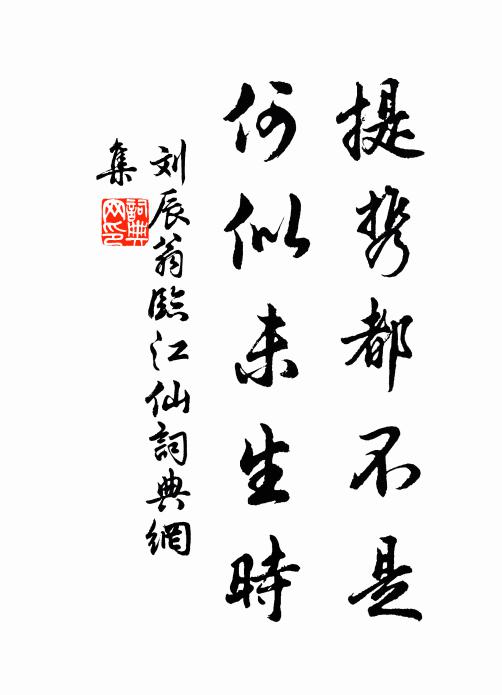 提携都不是
何似未生時
刘辰翁臨江仙詞典網
集
詞典網印